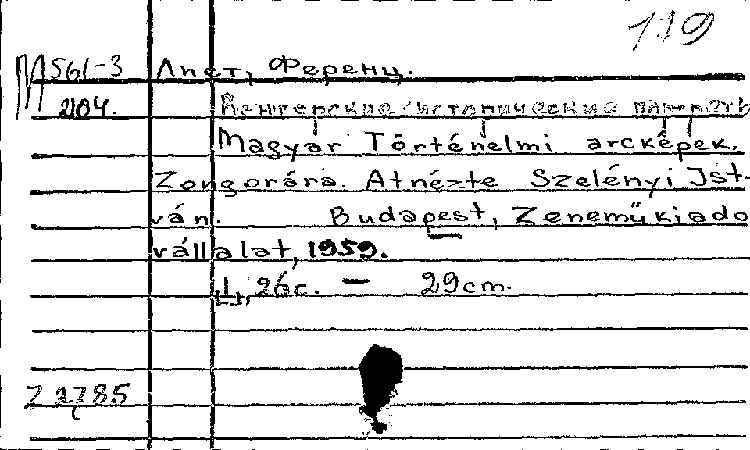 119
М561-3 Лист, Ференц.
204. Венгерские исторические портреты
Magyar Történelmi arcképek.
Zongorára. Átnézte Szelényi Ist-
ván. Budapest, Zeneműkiadó
vállalat, 1959.
26с. — 29cm.
Z 2785